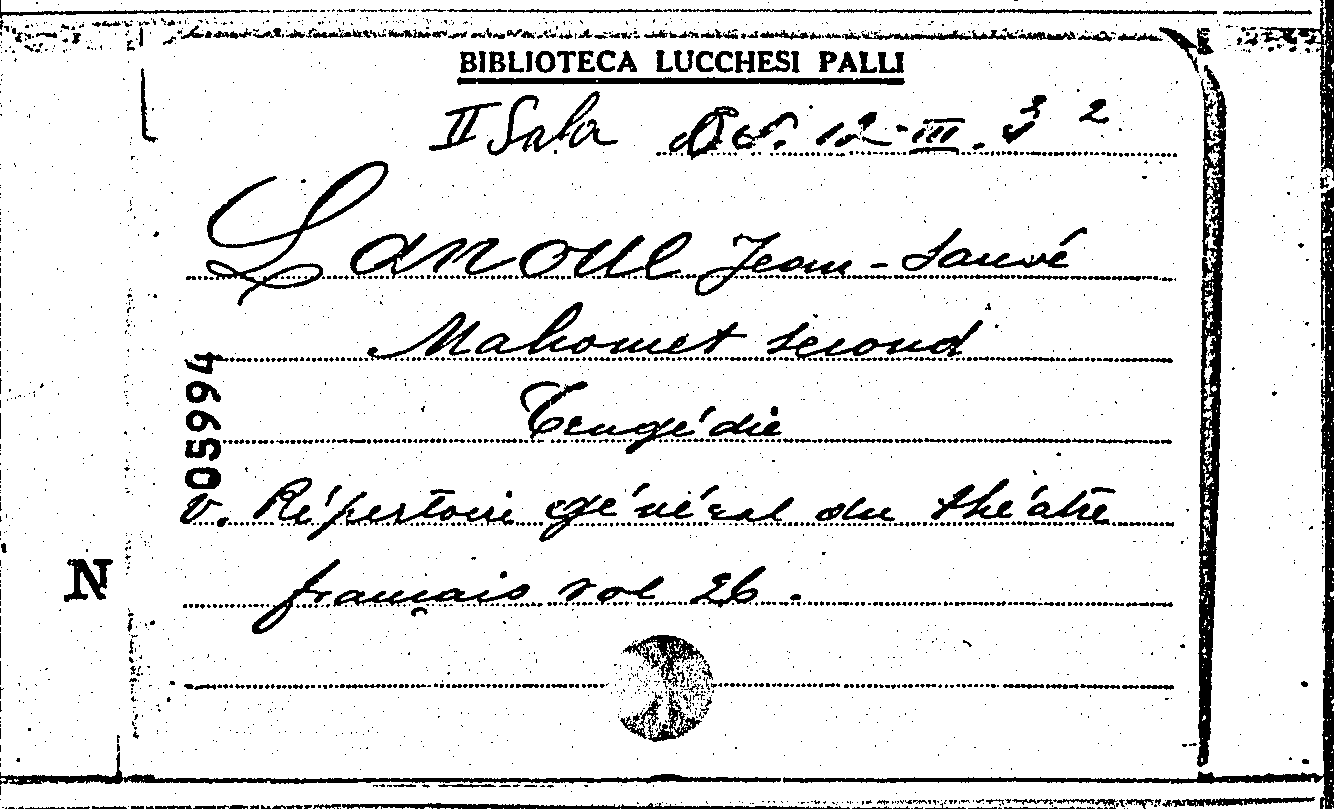 BIBLIOTECA LUCCHESI PALLI
II Sala 12-III.
Lanoue Jean-Sauvé
Mahomet second
Tragédie
05994
v. Répertoire général du théâtre
français vol 26.
N